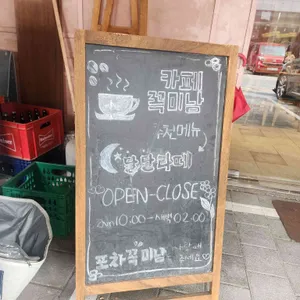 카페
꼭미남
추천메뉴
달달라떼
OPEN-CLOSE
AM 10:00 - 새벽 02:00
포차꼭미남